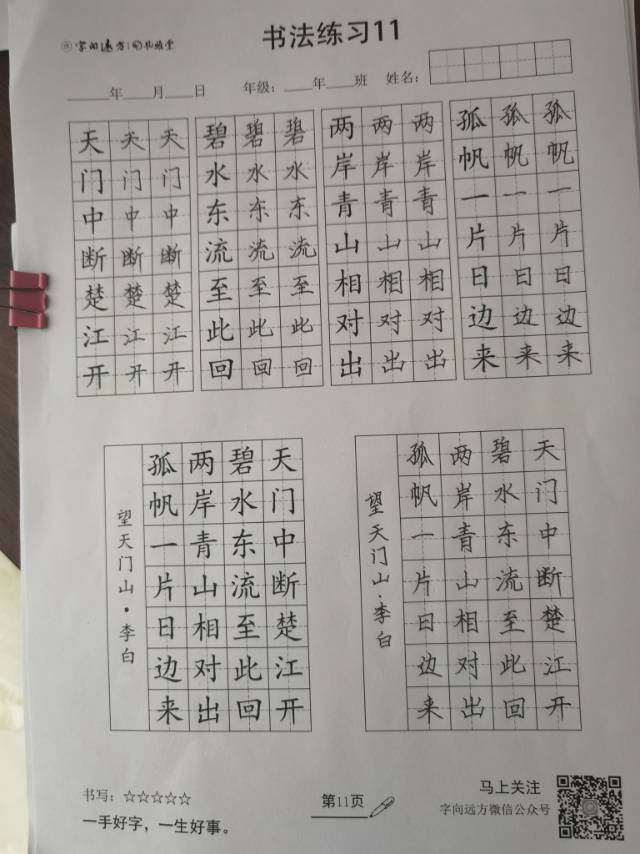 字向远方
书法练习11
____年____月____日 年级：____年____班 姓名：
天门中断楚江开
天门中断楚江开
天门中断楚江开
碧水东流至此回
碧水东流至此回
碧水东流至此回
两岸青山相对出
两岸青山相对出
两岸青山相对出
孤帆一片日边来
孤帆一片日边来
孤帆一片日边来
天门中断楚江开
碧水东流至此回
两岸青山相对出
孤帆一片日边来
望天门山·李白
天门中断楚江开
碧水东流至此回
两岸青山相对出
孤帆一片日边来
望天门山·李白
书写：☆☆☆☆☆
一手好字，一生好事。
第11页
马上关注
字向远方微信公众号